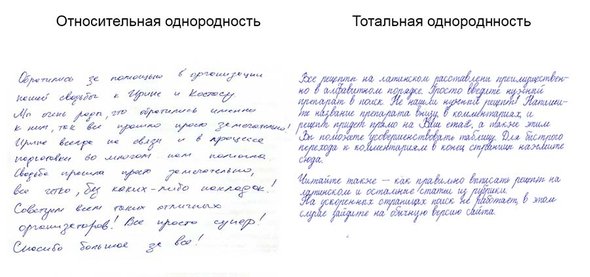 Относительная однородность
Обратились за помощью в организации
нашей свадьбы к Ирине и Костасу
Мы очень рады, что обратились именно
к ним, так все прошло просто замечательно!
Ирина всегда на связи и в процессе
подготовки во многом нам помогла
Свадьба прошла просто замечательно,
все четко, без каких-либо накладок!
Советуем всем таких отличных
организаторов! Все просто супер!
Спасибо большое за все!
Тотальная однороднность
Все рецепты на латинском расставлены преимуществен-
но в алфавитном порядке. Просто введите нужный
препарат в поиск. Не нашли нужный рецепт? Напиши-
те название препарата внизу в комментариях, и
рецепт придет прямо на Ваш етаз, а также этим
Вы поможете усовершенствовать таблицу. Для быстрого
перехода к комментариям в конец страницы нажмите
сюда.
Читайте также – как правильно выписать рецепт на
латинском и остальные статьи из рубрики.
На ускоренных страницах поиск не работает, в этом
случае зайдите на обычную версию сайта.